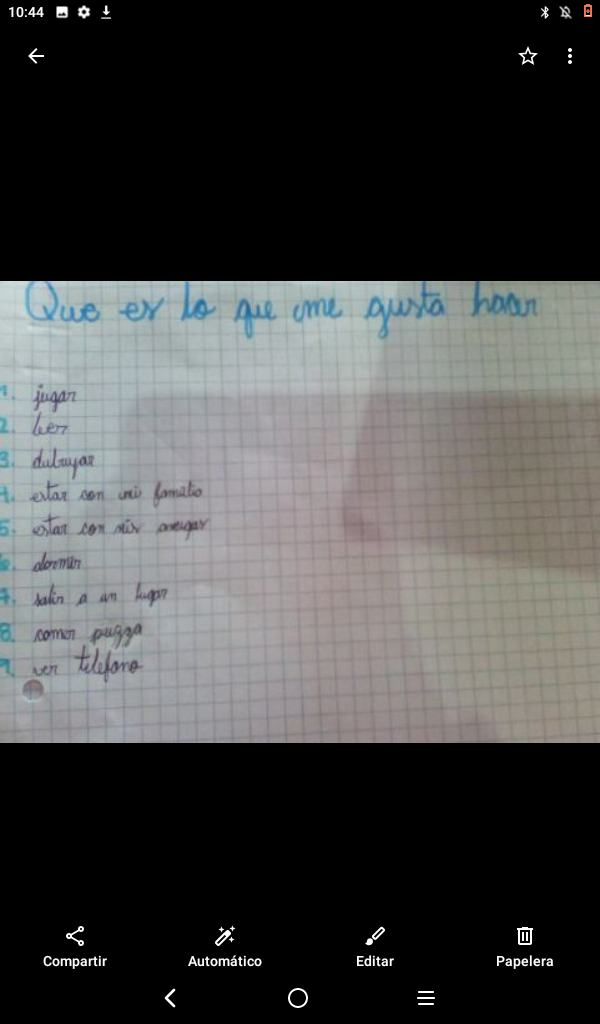 10:44
Que es lo que me gusta hacer
1. jugar
2. leer
3. dibujar
4. estar con mi familia
5. estar con mis amigas
6. dormir
7. salir a un lugar
8. comer pizza
9. ver telefono
Compartir Automático Editar Papelera